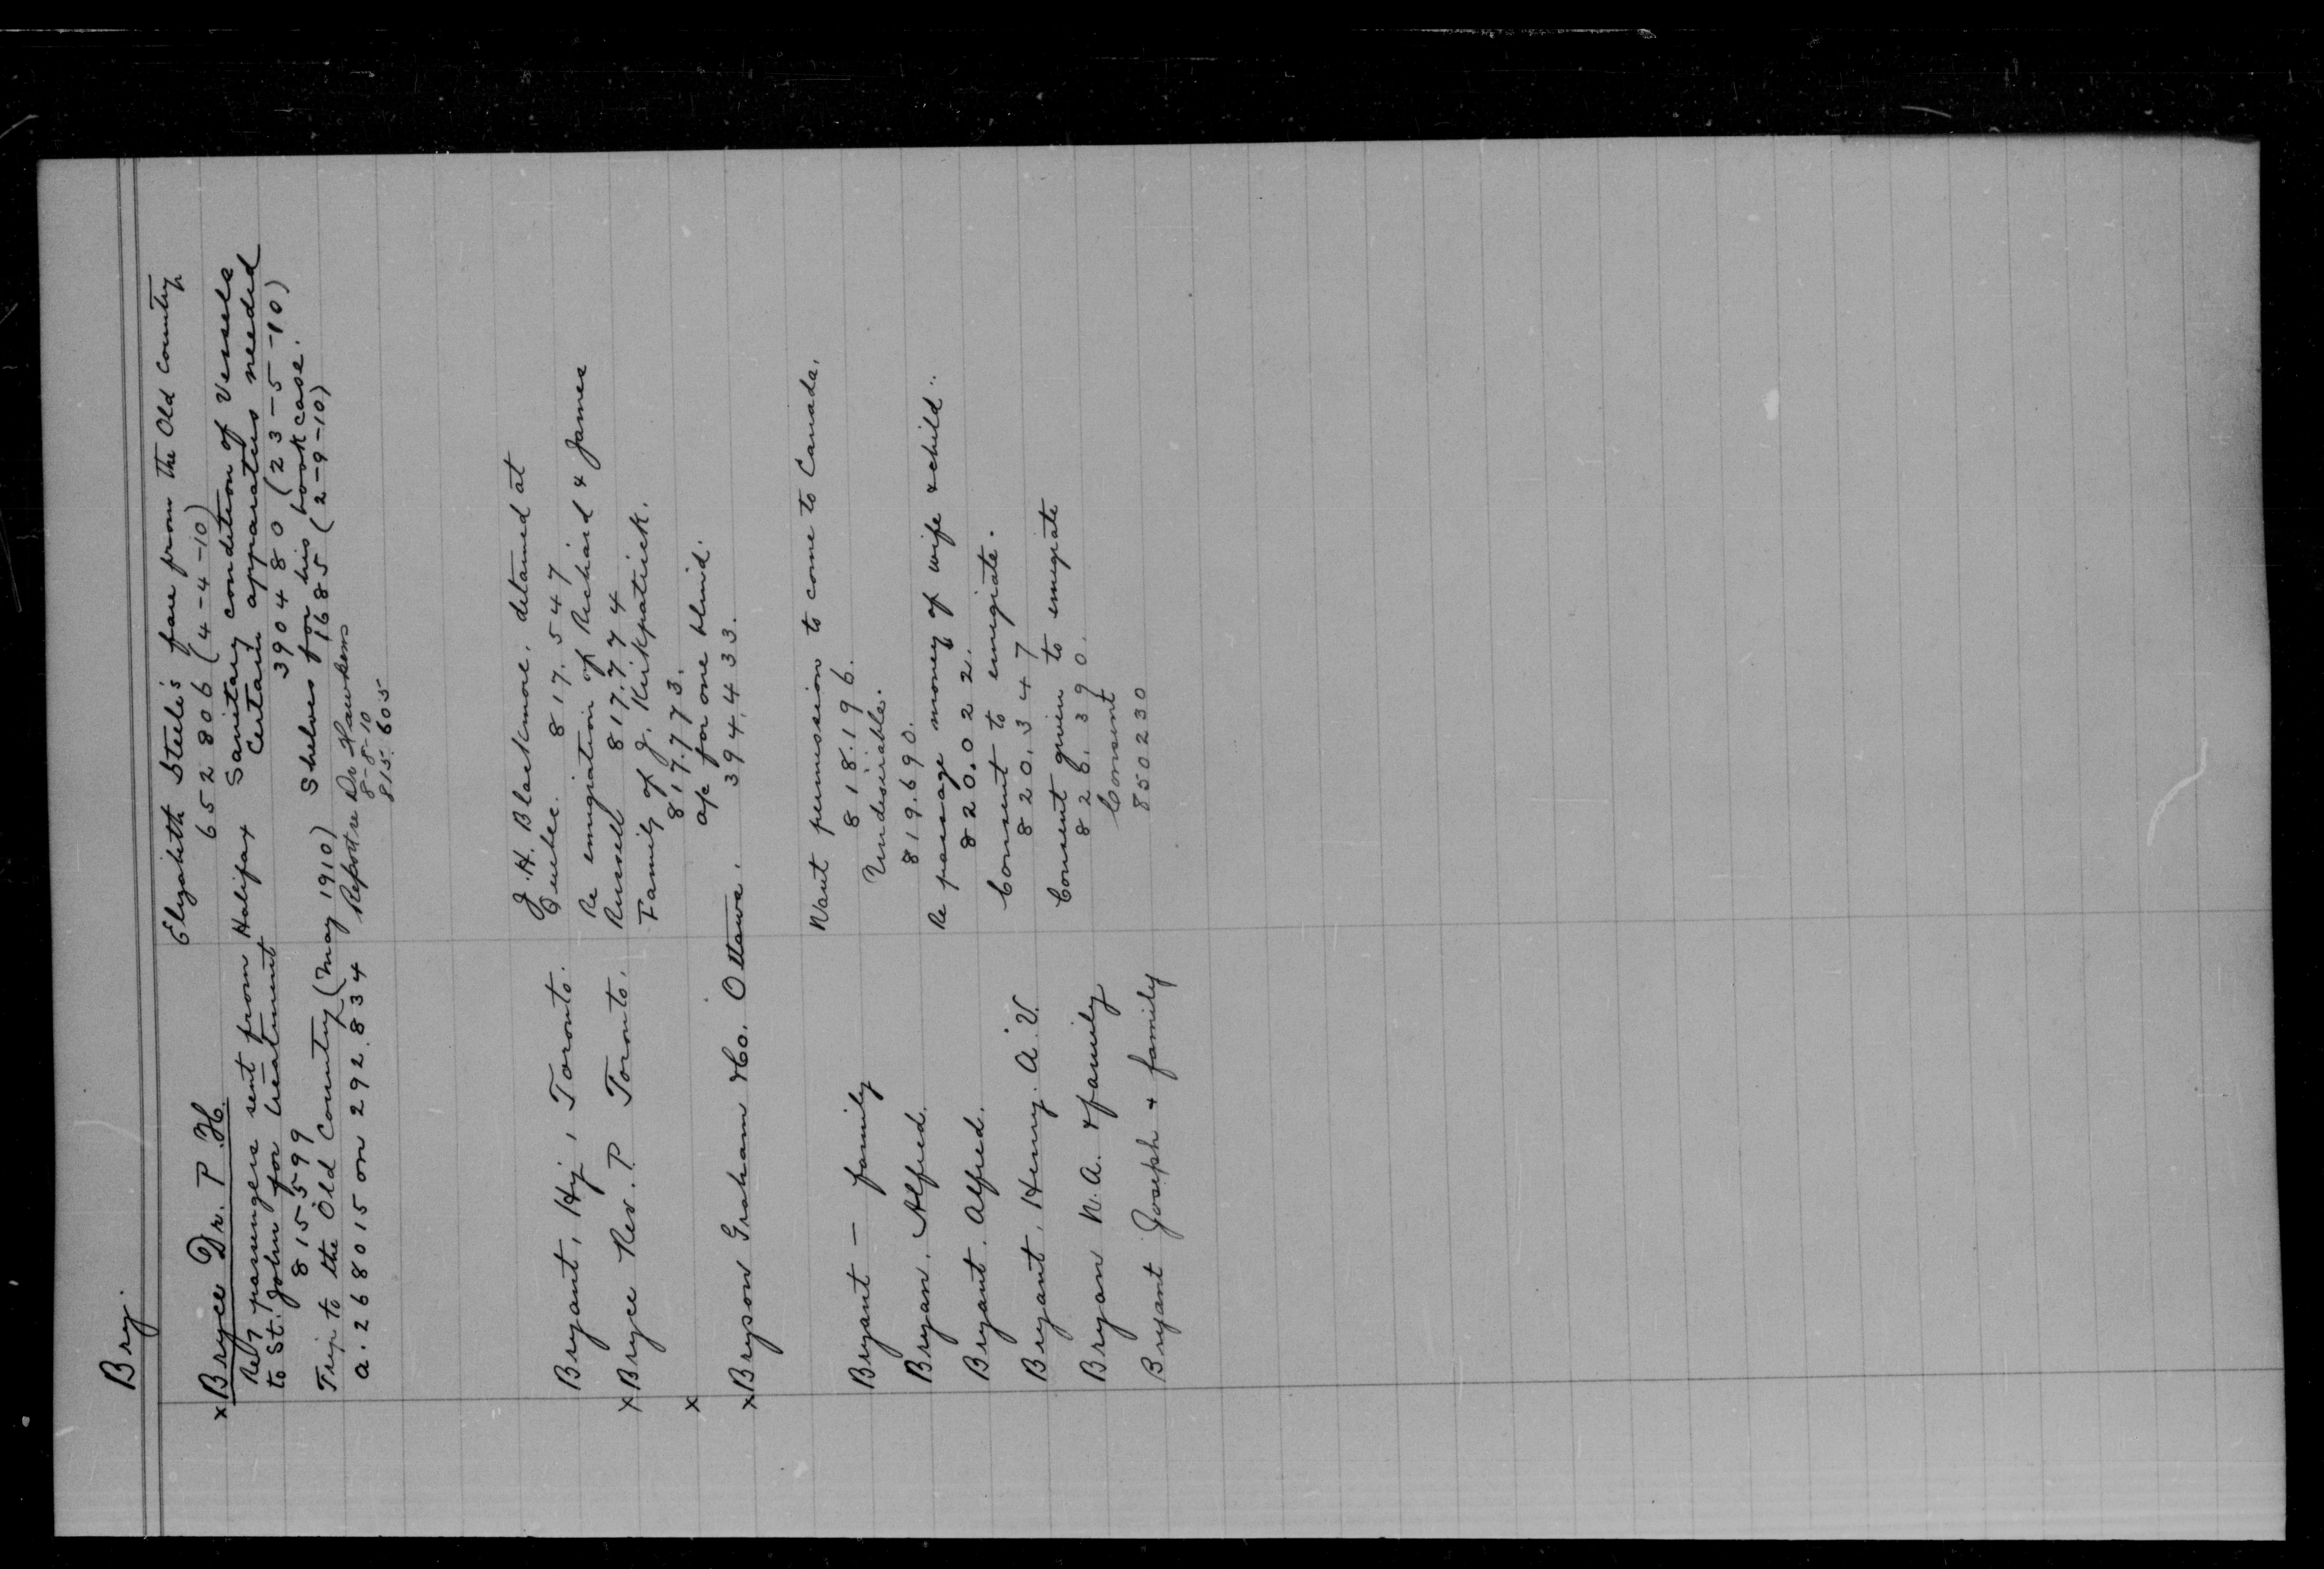 Bry.
Elizabeth Steele's fare from the Old Country
x Bryce Dr. P. H. 652806 (4-4-10)
Re passengers sent from Halifax Sanitary condition of Vessels
to St. John for treatment Certain apparatus needed
815.599 390480 (23-5-10)
Trip to the Old Country (May 1910) Shelves for his book case.
1685 (2-9-10)
a. 268015 on 292.834 Report re Dr Hawkens
8-8-10
815.605
J. H. Blackmore, detained at
Bryant, Hy, Toronto. Quebec. 817.547
Re emigration of Richard & James
x Bryce Rev. P Toronto. Russell 817.774
Family of J. Kirkpatrick.
x 817.773.
a/c for one blind.
x Bryson Graham & Co. Ottawa. 394.433.
Want permission to come to Canada.
Bryant — family 818.196.
Undesirable.
Bryan, Alfred. 819.690.
Re passage money of wife & child.
Bryant, Alfred. 820.022.
Consent to emigrate.
Bryant, Henry. A. V. 820.347
Consent given to emigrate
Bryan W. A. & family 826.390.
Consent
Bryant Joseph & family 850230